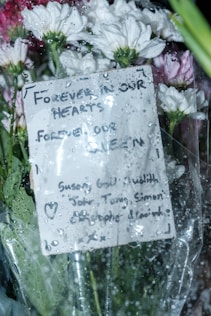 FOREVER IN OUR
HEARTS
FOREVER OUR
QUEEN
Susan, Gail Judith
John Tony, Simon
xxx